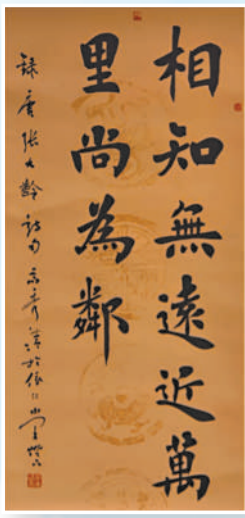 相知無遠近萬
里尚為鄰
録唐張九齡詩句